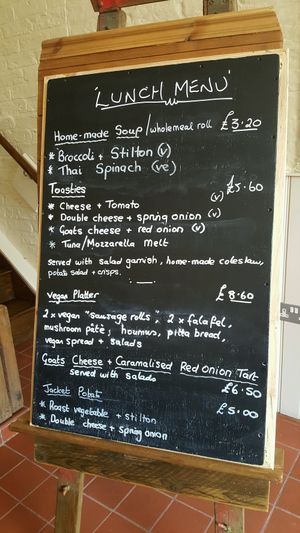 'LUNCH MENU'
Home-made Soup/wholemeal roll £3.20
* Broccoli + Stilton (v)
* Thai Spinach (ve)
Toasties £5.60
* Cheese + Tomato (v)
* Double cheese + spring onion (v)
* Goats cheese + red onion (v)
* Tuna/Mozzarella melt
served with salad garnish, home-made coleslaw,
potato salad + crisps.
Vegan Platter £8.60
2 x vegan "sausage rolls", 2 x falafel,
mushroom pâtè, houmus, pitta bread,
vegan spread + salads
Goats Cheese + Caramalised Red Onion Tart
served with salads £6.50
Jacket Potato £5.00
* Roast vegetable + stilton
* Double cheese + spring onion